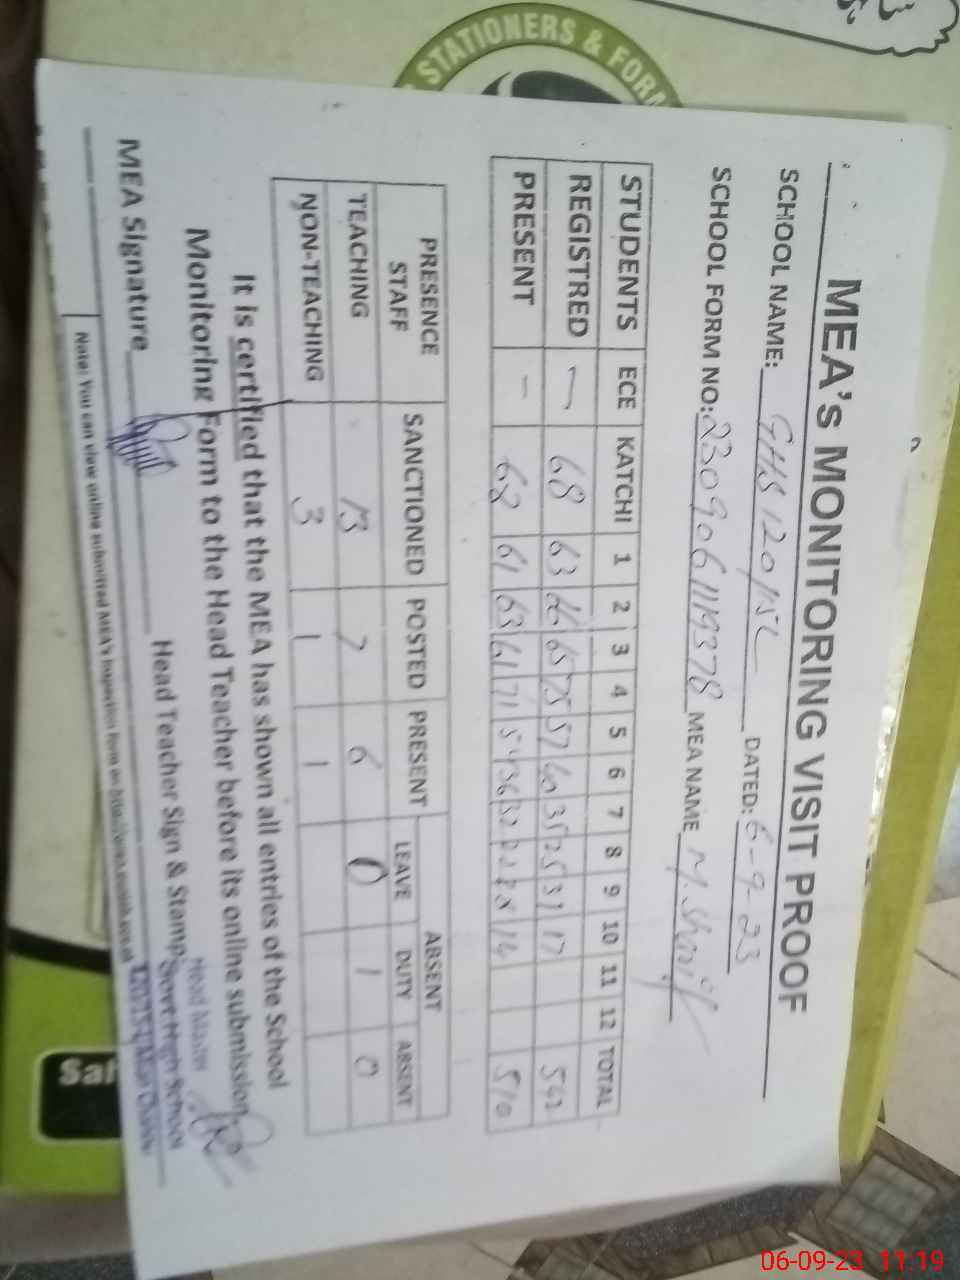 STATIONERS & FORM
MEA's MONITORING VISIT PROOF
SCHOOL NAME: GHS 120/15L DATED: 6-9-23
SCHOOL FORM NO: MEA NAME M. Sharif
STUDENTS ECE KATCHI 1 2 3 4 5 6 7 8 9 10 11 12 TOTAL
REGISTRED — 68 63 66 65 75 57 40 35 25 31 17 542
PRESENT — 62 61 63 61 71 54 36 32 22 28 14 510
PRESENCE STAFF SANCTIONED POSTED PRESENT ABSENT
LEAVE DUTY ABSENT
TEACHING 13 7 6 0 1 0
NON-TEACHING 3 1 1
It is certified that the MEA has shown all entries of the School
Monitoring Form to the Head Teacher before its online submission
MEA Signature Head Teacher Sign & Stamp
Head Master
Govt High School
120/15-L Mian Channu
Note: You can view online submitted MEA's inspection form on
Saf
06-09-23 11:19